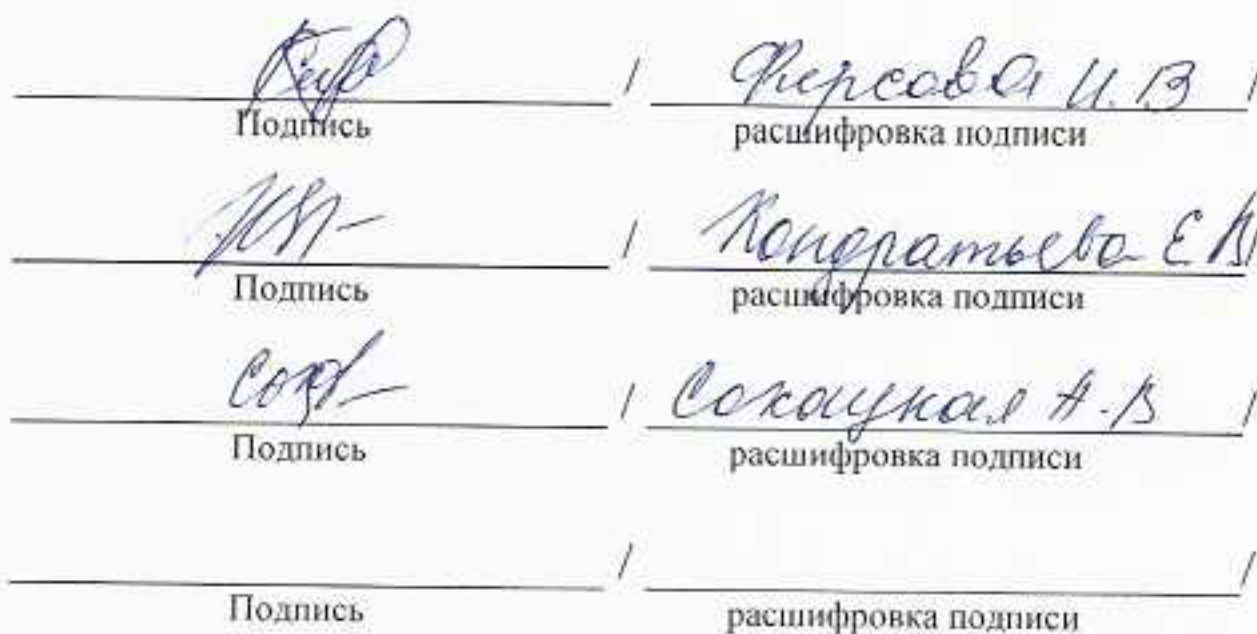 / Фирсова И. В /
Подпись расшифровка подписи
/ Кондратьева Е В /
Подпись расшифровка подписи
/ А. В /
Подпись расшифровка подписи
/ /
Подпись расшифровка подписи